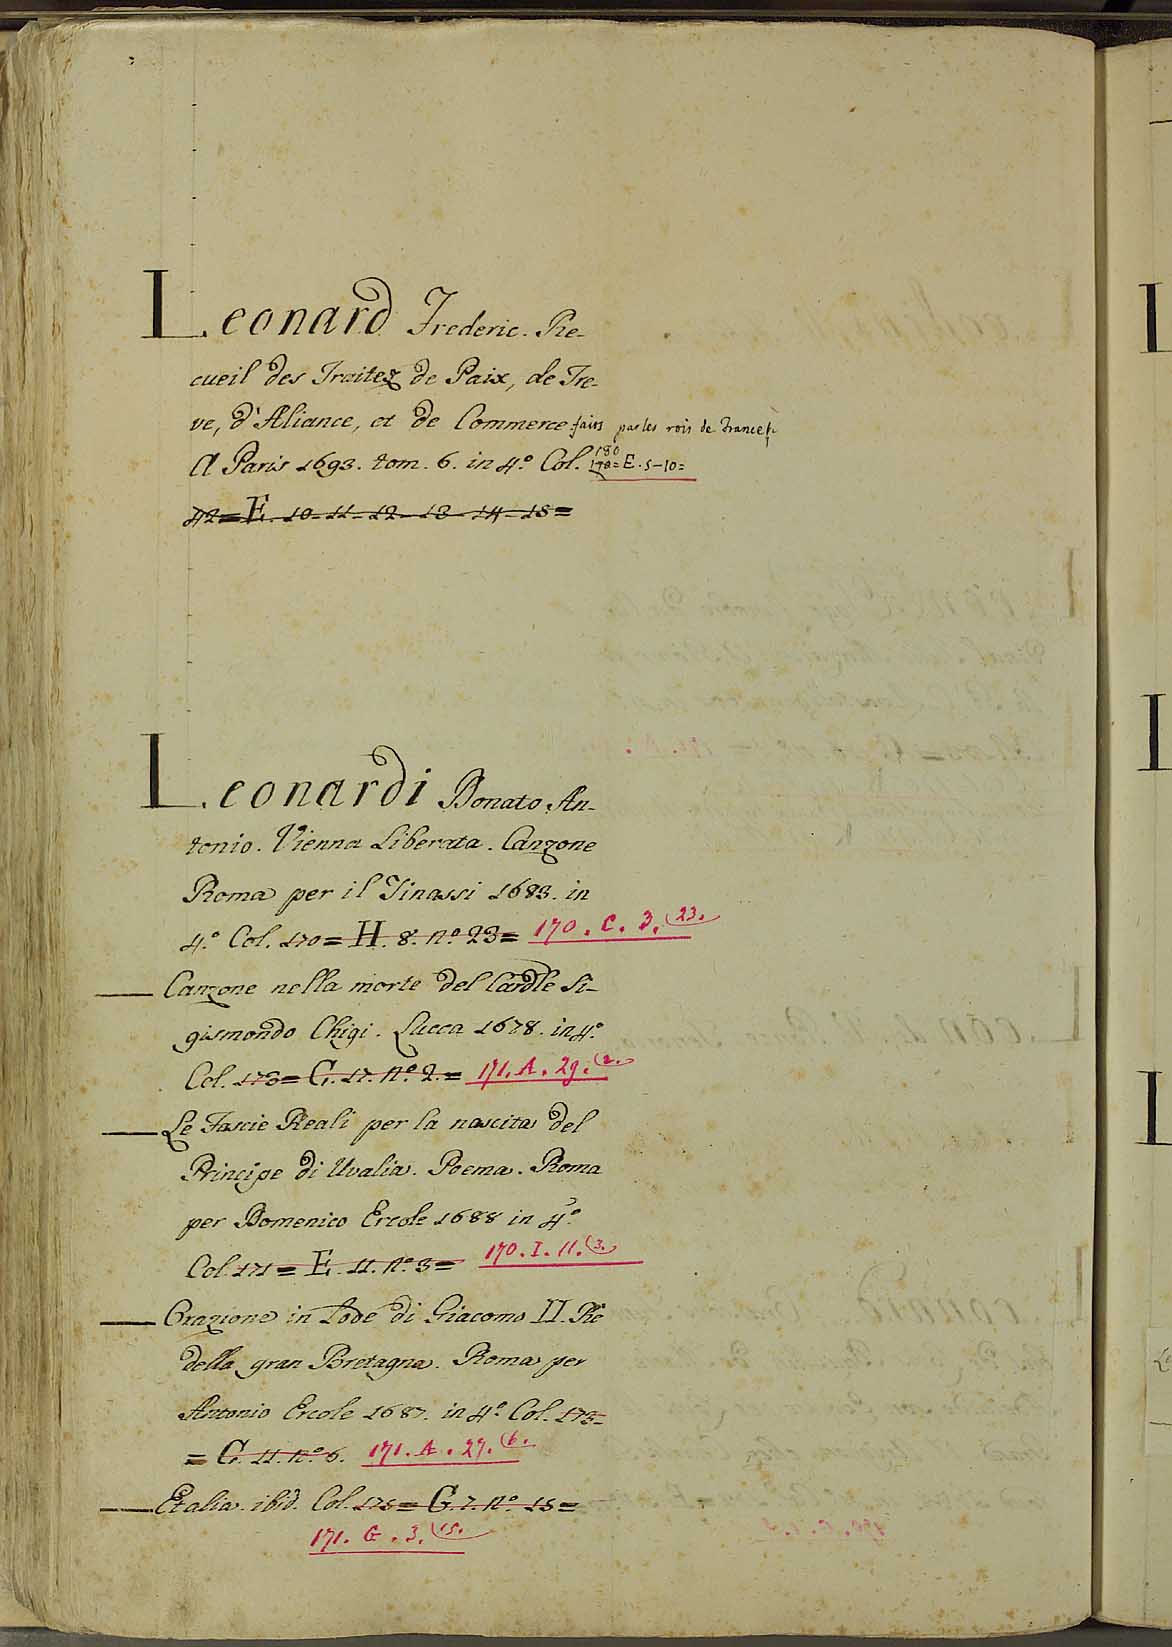 Leonard Frederic. Re-
cueil des Traitez de Paix, de Tre-
ve, d'Aliance, et de Commerce faits par les rois de France
A Paris 1693. tom. 6. in 4.º Col. 180
178=E.5-10=
42=E.10-11-12-13-14-15=
Leonardi Donato An-
tonio. Vienna Liberata. Canzone
Roma per il Tinassi 1683. in
4.º Col. 170=H.8.nº 23= 170.C.3.(23.
Canzone nella morte del Cardle Si-
gismondo Chigi. Lucca 1678. in 4º
Col. 173=G.17.nº.2.= 171.A.29.(2.
Le Fascie Reali per la nascita del
Principe di Uvalia. Poema. Roma
per Domenico Ercole 1688 in 4º.
Col. 171=E.11.nº.3= 170.I.11.(3.
Orazione in Lode di Giacomo II. Re
della gran Bretagna. Roma per
Antonio Ercole 1687. in 4º. Col. 173-
=G.11.nº.6. 171.A.27.(6.
Et alia. ibid. Col. 175=G.7.nº 15=
171.G.3.(15.
L
L
L